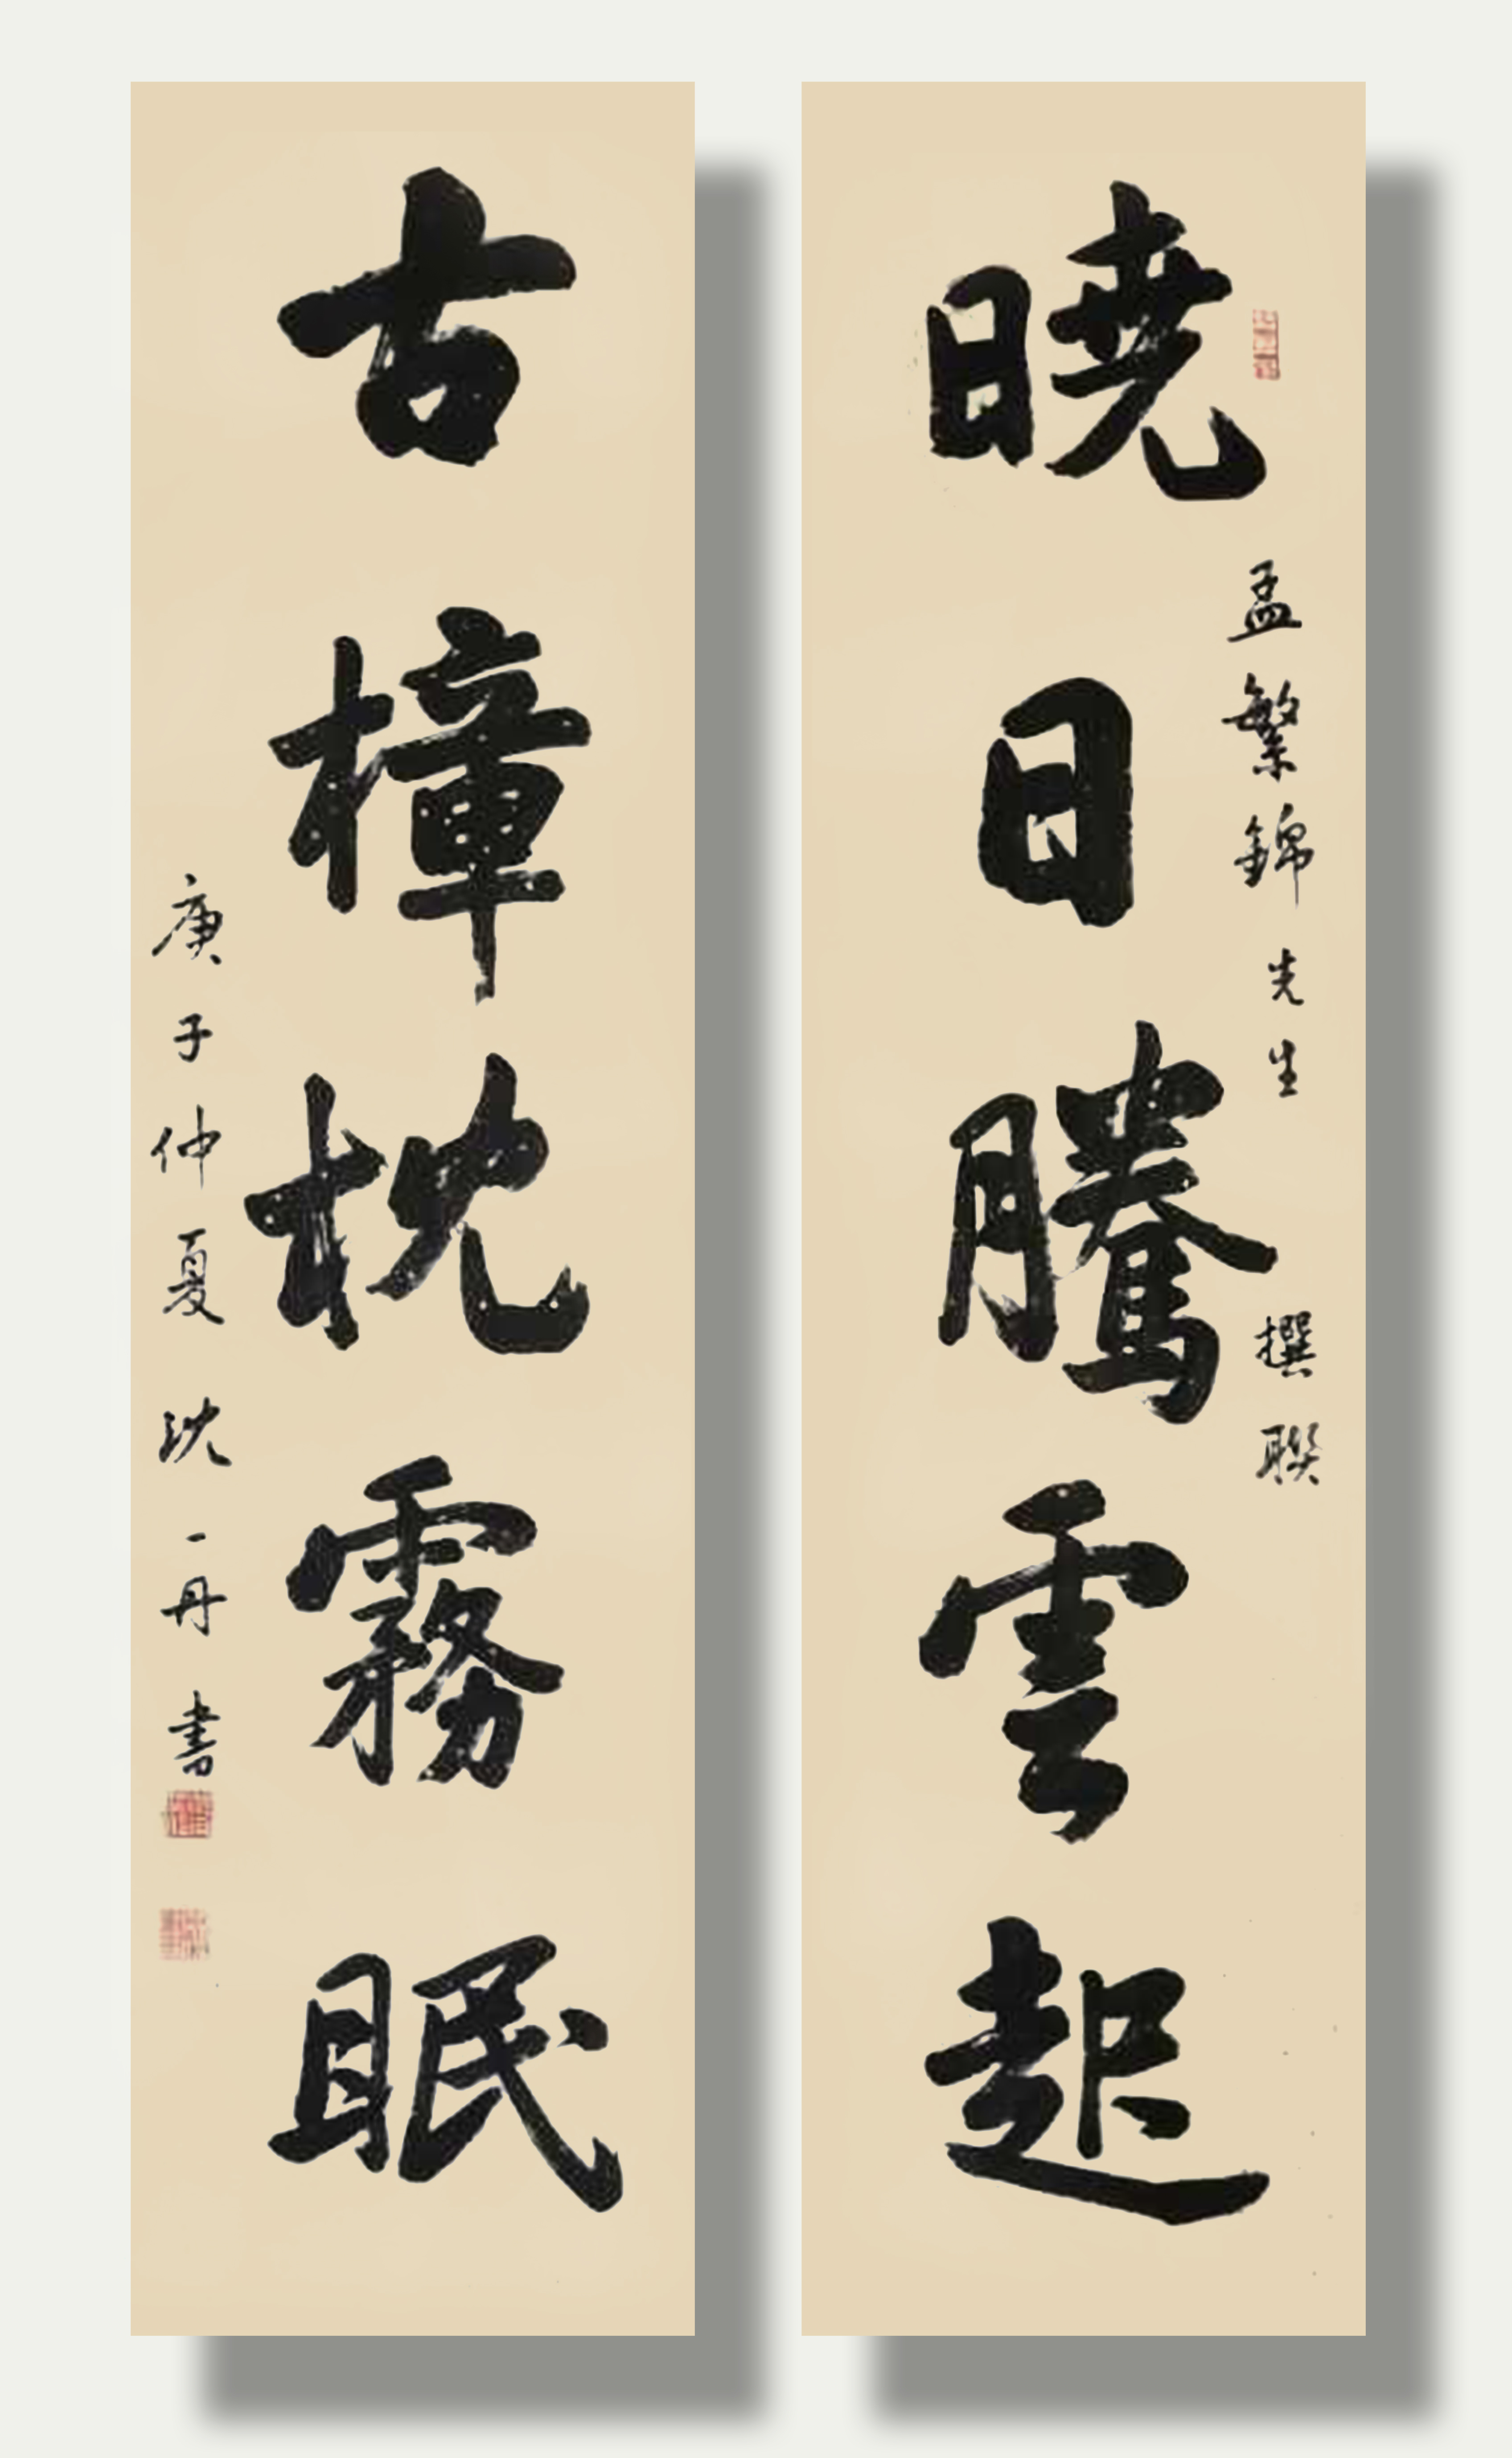 曉日騰雲起
孟繁錦先生撰聯
古樟枕霧眠
庚子仲夏沈一丹書